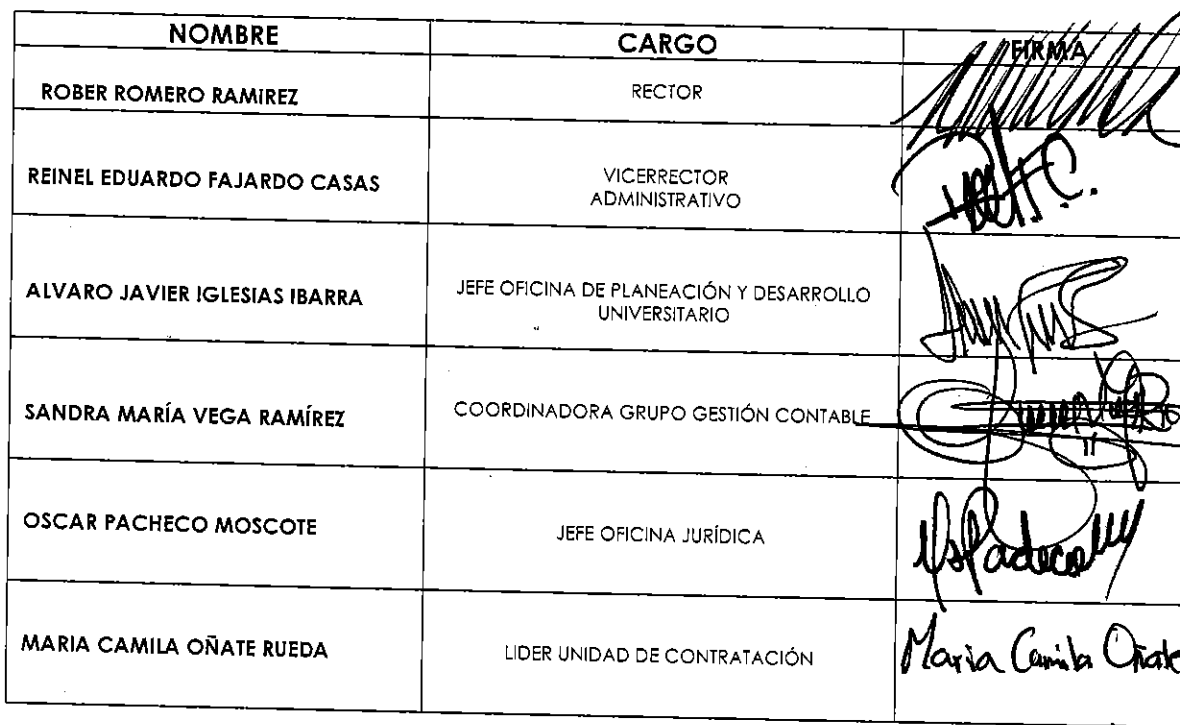 NOMBRE CARGO FIRMA
ROBER ROMERO RAMIREZ RECTOR
REINEL EDUARDO FAJARDO CASAS VICERRECTOR
ADMINISTRATIVO
ALVARO JAVIER IGLESIAS IBARRA JEFE OFICINA DE PLANEACIÓN Y DESARROLLO
UNIVERSITARIO
SANDRA MARÍA VEGA RAMÍREZ COORDINADORA GRUPO GESTIÓN CONTABLE
OSCAR PACHECO MOSCOTE JEFE OFICINA JURÍDICA
MARIA CAMILA OÑATE RUEDA LIDER UNIDAD DE CONTRATACIÓN Maria Camila Oñate